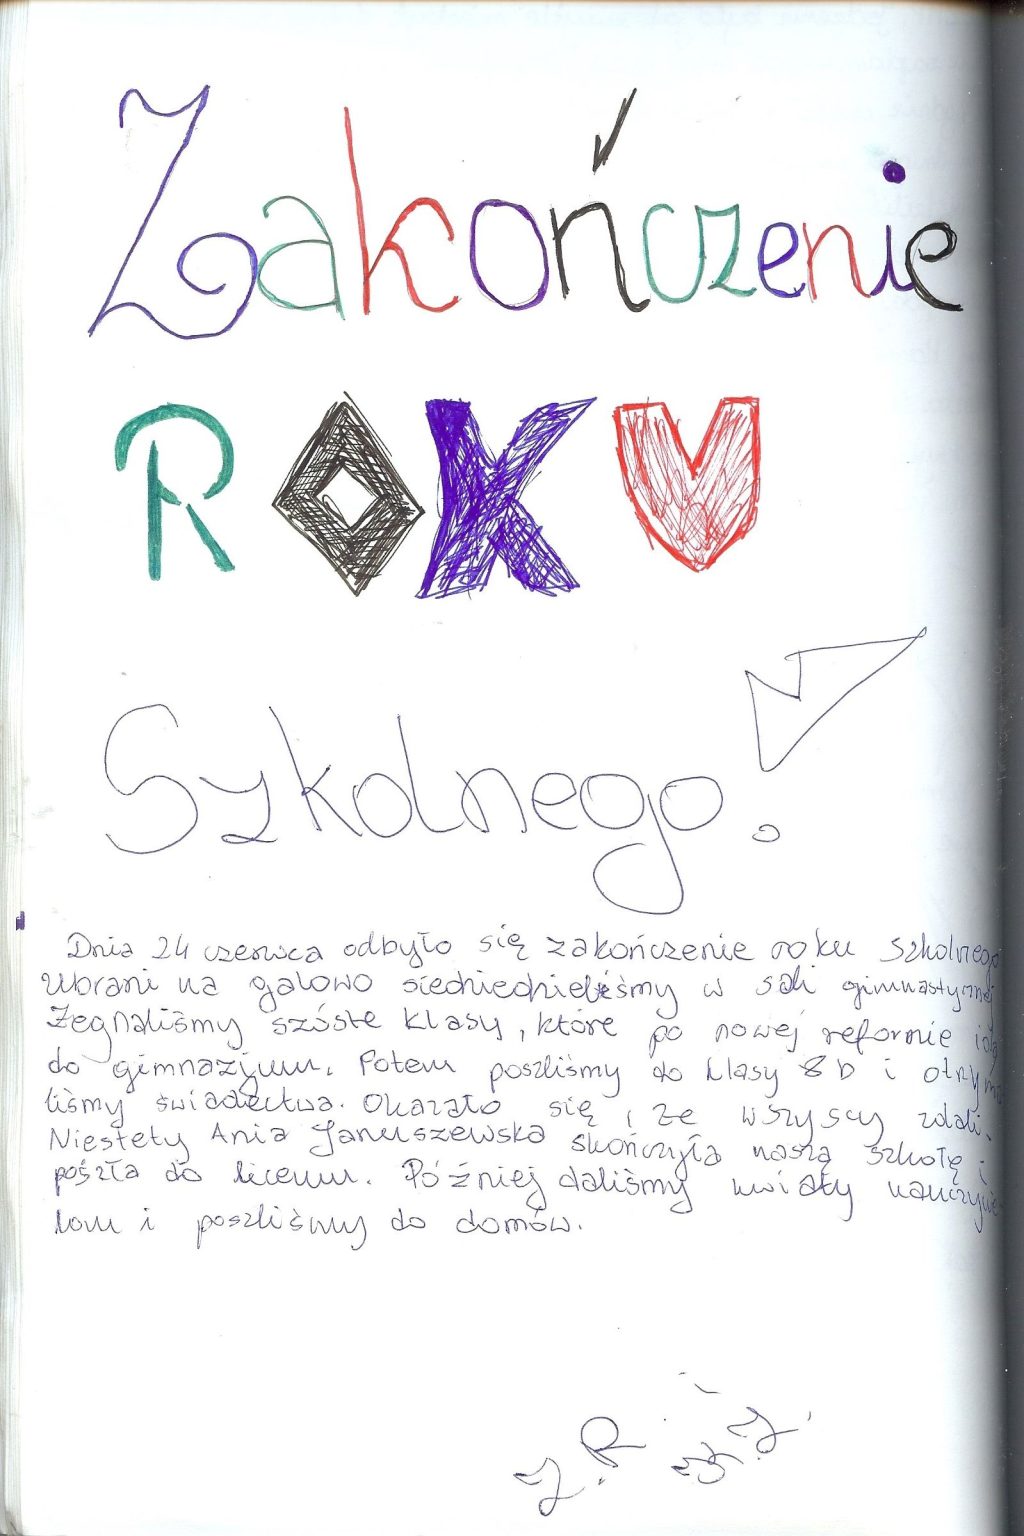 Zakończenie
ROKU
Szkolnego!
Dnia 24 czerwca odbyło się zakończenie roku szkolnego
Ubrani na galowo siedzieliśmy w sali gimnastycznej
Żegnaliśmy szóste klasy, które po nowej reformie idą
do gimnazjum. Potem poszliśmy do klasy 8 D i otrzyma
liśmy świadectwa. Okazało się, że wszyscy zdali.
Niestety Ania Januszewska skończyła naszą szkołę i
poszła do liceum. Później daliśmy kwiaty nauczycie
lom i poszliśmy do domów.